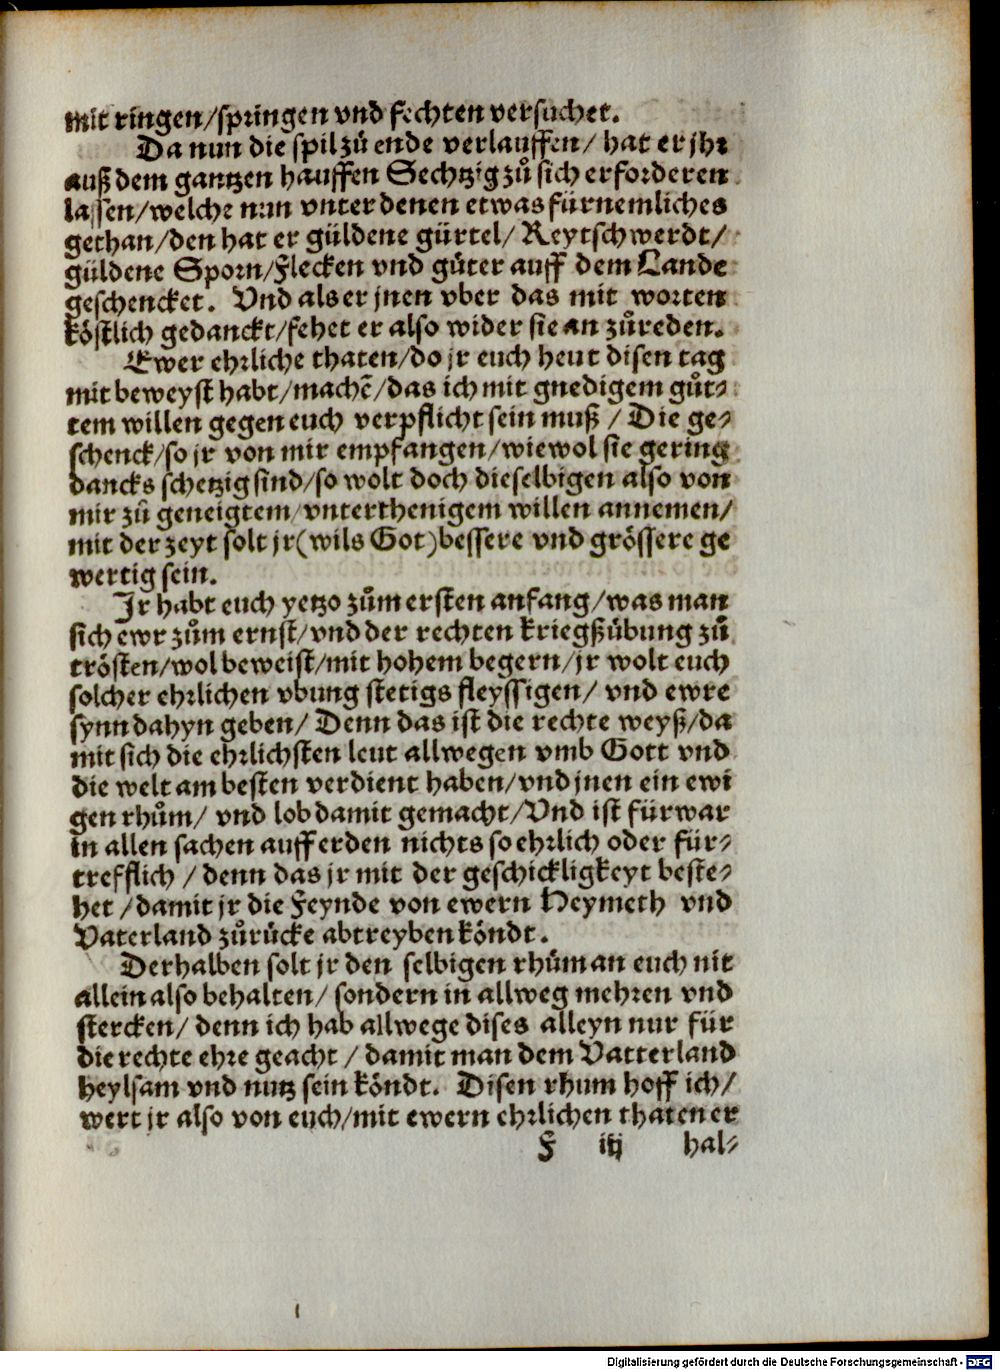 mit ringen/springen vnd fechten versuchet.
Da nun die spil zů ende verlauffen/ hat er jhr
auß dem gantzen hauffen Sechtzig zů sich erforderen
lassen/welche nun vnter denen etwas fürnemliches
gethan/den hat er güldene gürtel/ Reytschwerdt/
güldene Sporn/Flecken vnd gůter auff dem Lande
geschencket. Vnd als er jnen vber das mit worten
köstlich gedanckt/fehet er also wider sie an zůreden.
Ewer ehrliche thaten/do jr euch heut disen tag
mit beweyst habt/machē/das ich mit gnedigem gůt-
tem willen gegen euch verpflicht sein muß / Die ge-
schenck/so jr von mir empfangen/wiewol sie gering
dancks schetzig sind/so wolt doch dieselbigen also von
mir zů geneigtem/vnterthenigem willen annemen/
mit der zeyt solt jr(wils Got)bessere vnd grössere ge
wertig sein.
Jr habt euch yetzo zům ersten anfang/was man
sich ewr zům ernst/vnd der rechten kriegßübung zů
trösten/wol beweist/mit hohem begern/jr wolt euch
solcher ehrlichen vbung stetigs fleyssigen/ vnd ewre
synn dahyn geben/ Denn das ist die rechte weyß/da
mit sich die ehrlichsten leut allwegen vmb Gott vnd
die welt am besten verdient haben/vnd jnen ein ewi
gen rhům/ vnd lob damit gemacht/Vnd ist fürwar
in allen sachen auff erden nichts so ehrlich oder für-
trefflich / denn das jr mit der geschickligkeyt beste-
het /damit jr die Feynde von ewern Heymeth vnd
Vaterland zůrücke abtreyben köndt.
Derhalben solt jr den selbigen rhům an euch nit
allein also behalten/ sondern in allweg mehren vnd
stercken/ denn ich hab allwege dises alleyn nur für
die rechte ehre geacht / damit man dem Vatterland
heylsam vnd nutz sein köndt. Disen rhum hoff ich/
wert jr also von euch/mit ewern ehrlichen thaten er
F iij hal-
Digitalisierung gefördert durch die Deutsche Forschungsgemeinschaft - DFG